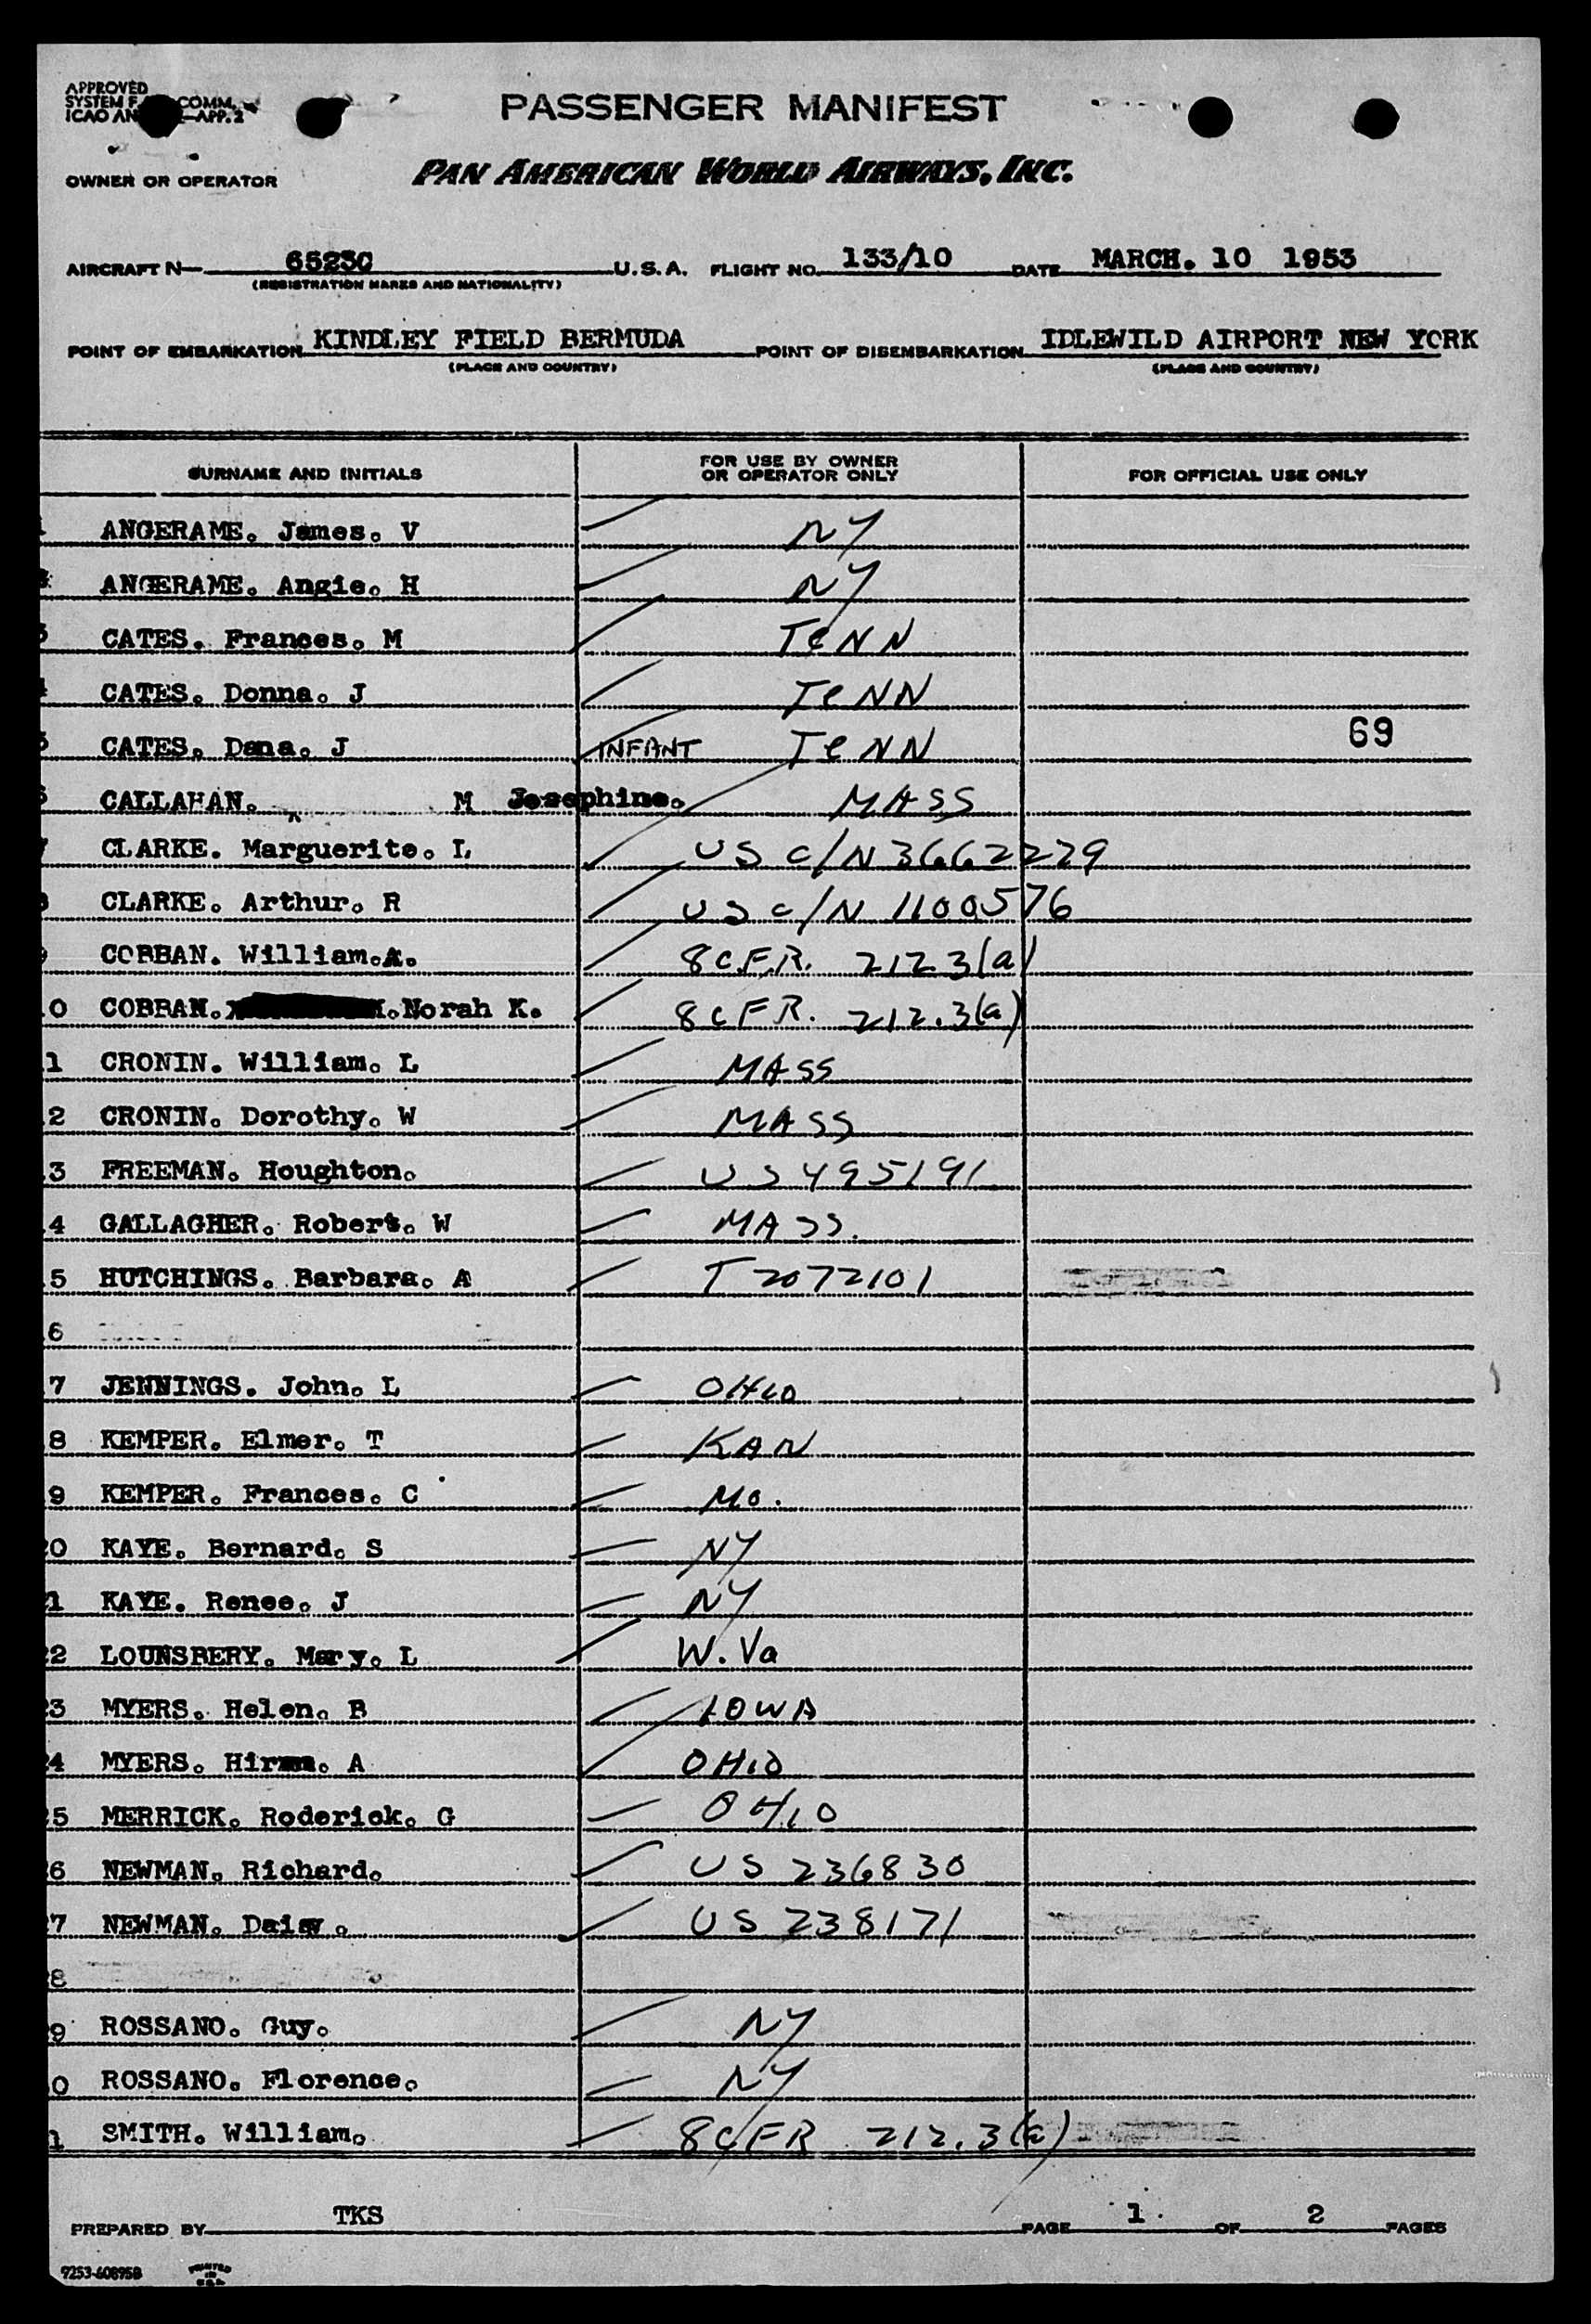 APPROVED
SYSTEM F COMM.
ICAO AN -APP. 2
PASSENGER MANIFEST
OWNER OR OPERATOR PAN AMERICAN WORLD AIRWAYS, INC.
AIRCRAFT N— 6523C U.S.A. FLIGHT NO. 133/10 DATE MARCH. 10 1953
(REGISTRATION MARKS AND NATIONALITY)
POINT OF EMBARKATION KINDLEY FIELD BERMUDA POINT OF DISEMBARKATION IDLEWILD AIRPORT NEW YORK
(PLACE AND COUNTRY) (PLACE AND COUNTRY)
SURNAME AND INITIALS FOR USE BY OWNER OR OPERATOR ONLY FOR OFFICIAL USE ONLY
ANGERAME. James. V NY
ANGERAME. Angie. H NY
CATES. Frances. M TENN
CATES. Donna. J TENN
CATES. Dana. J INFANT TENN 69
CALLAHAN. M Josephine. MASS
CLARKE. Marguerite. L US C/N 3662229
CLARKE. Arthur. R US C/N 1100576
COBBAN. William.A. 8 C.F.R. 212.3(a)
0 COBBAN. .Norah K. 8 CFR. 212.3(a)
1 CRONIN. William. L MASS
2 CRONIN. Dorothy. W MASS
3 FREEMAN. Houghton. US 495191
4 GALLAGHER. Robert. W MASS.
5 HUTCHINGS. Barbara. A T 2072101
6
7 JENNINGS. John. L OHIO
8 KEMPER. Elmer. T KAN
9 KEMPER. Frances. C MO.
0 KAYE. Bernard. S NY
1 KAYE. Renee. J NY
2 LOUNSBERY. Mary. L W. Va
3 MYERS. Helen. B IOWA
4 MYERS. Hiram. A OHIO
5 MERRICK. Roderick. G OHIO
6 NEWMAN. Richard. US 236830
7 NEWMAN. Daisy. US 238171
8
9 ROSSANO. Guy. NY
0 ROSSANO. Florence. NY
1 SMITH. William. 8 CFR 212.3(a)
PREPARED BY TKS PAGE 1 OF 2 PAGES
9253-608958 PRINTED IN U.S.A.